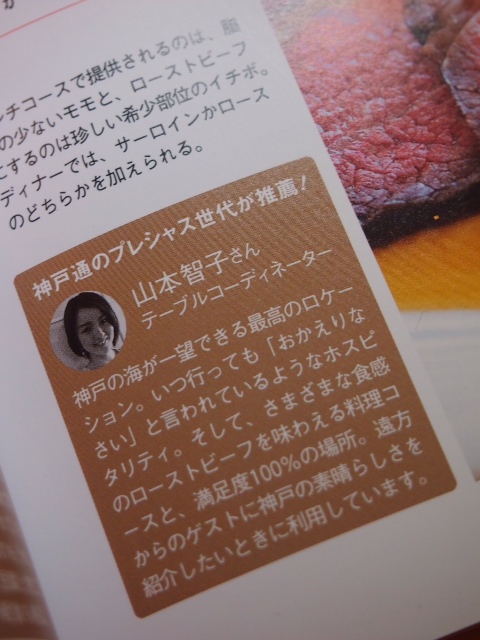 が
ンチコースで提供されるのは、脂
の少ないモモと、ローストビーフ
にするのは珍しい希少部位のイチボ。
ディナーでは、サーロインかロース
のどちらかを加えられる。
神戸通のプレシャス世代が推薦!
山本智子さん
テーブルコーディネーター
神戸の海が一望できる最高のロケー
ション。いつ行っても「おかえりな
さい」と言われているようなホスピ
タリティ。そして、さまざまな食感
のローストビーフを味わえる料理コ
ースと、満足度100%の場所。遠方
からのゲストに神戸の素晴らしさを
紹介したいときに利用しています。